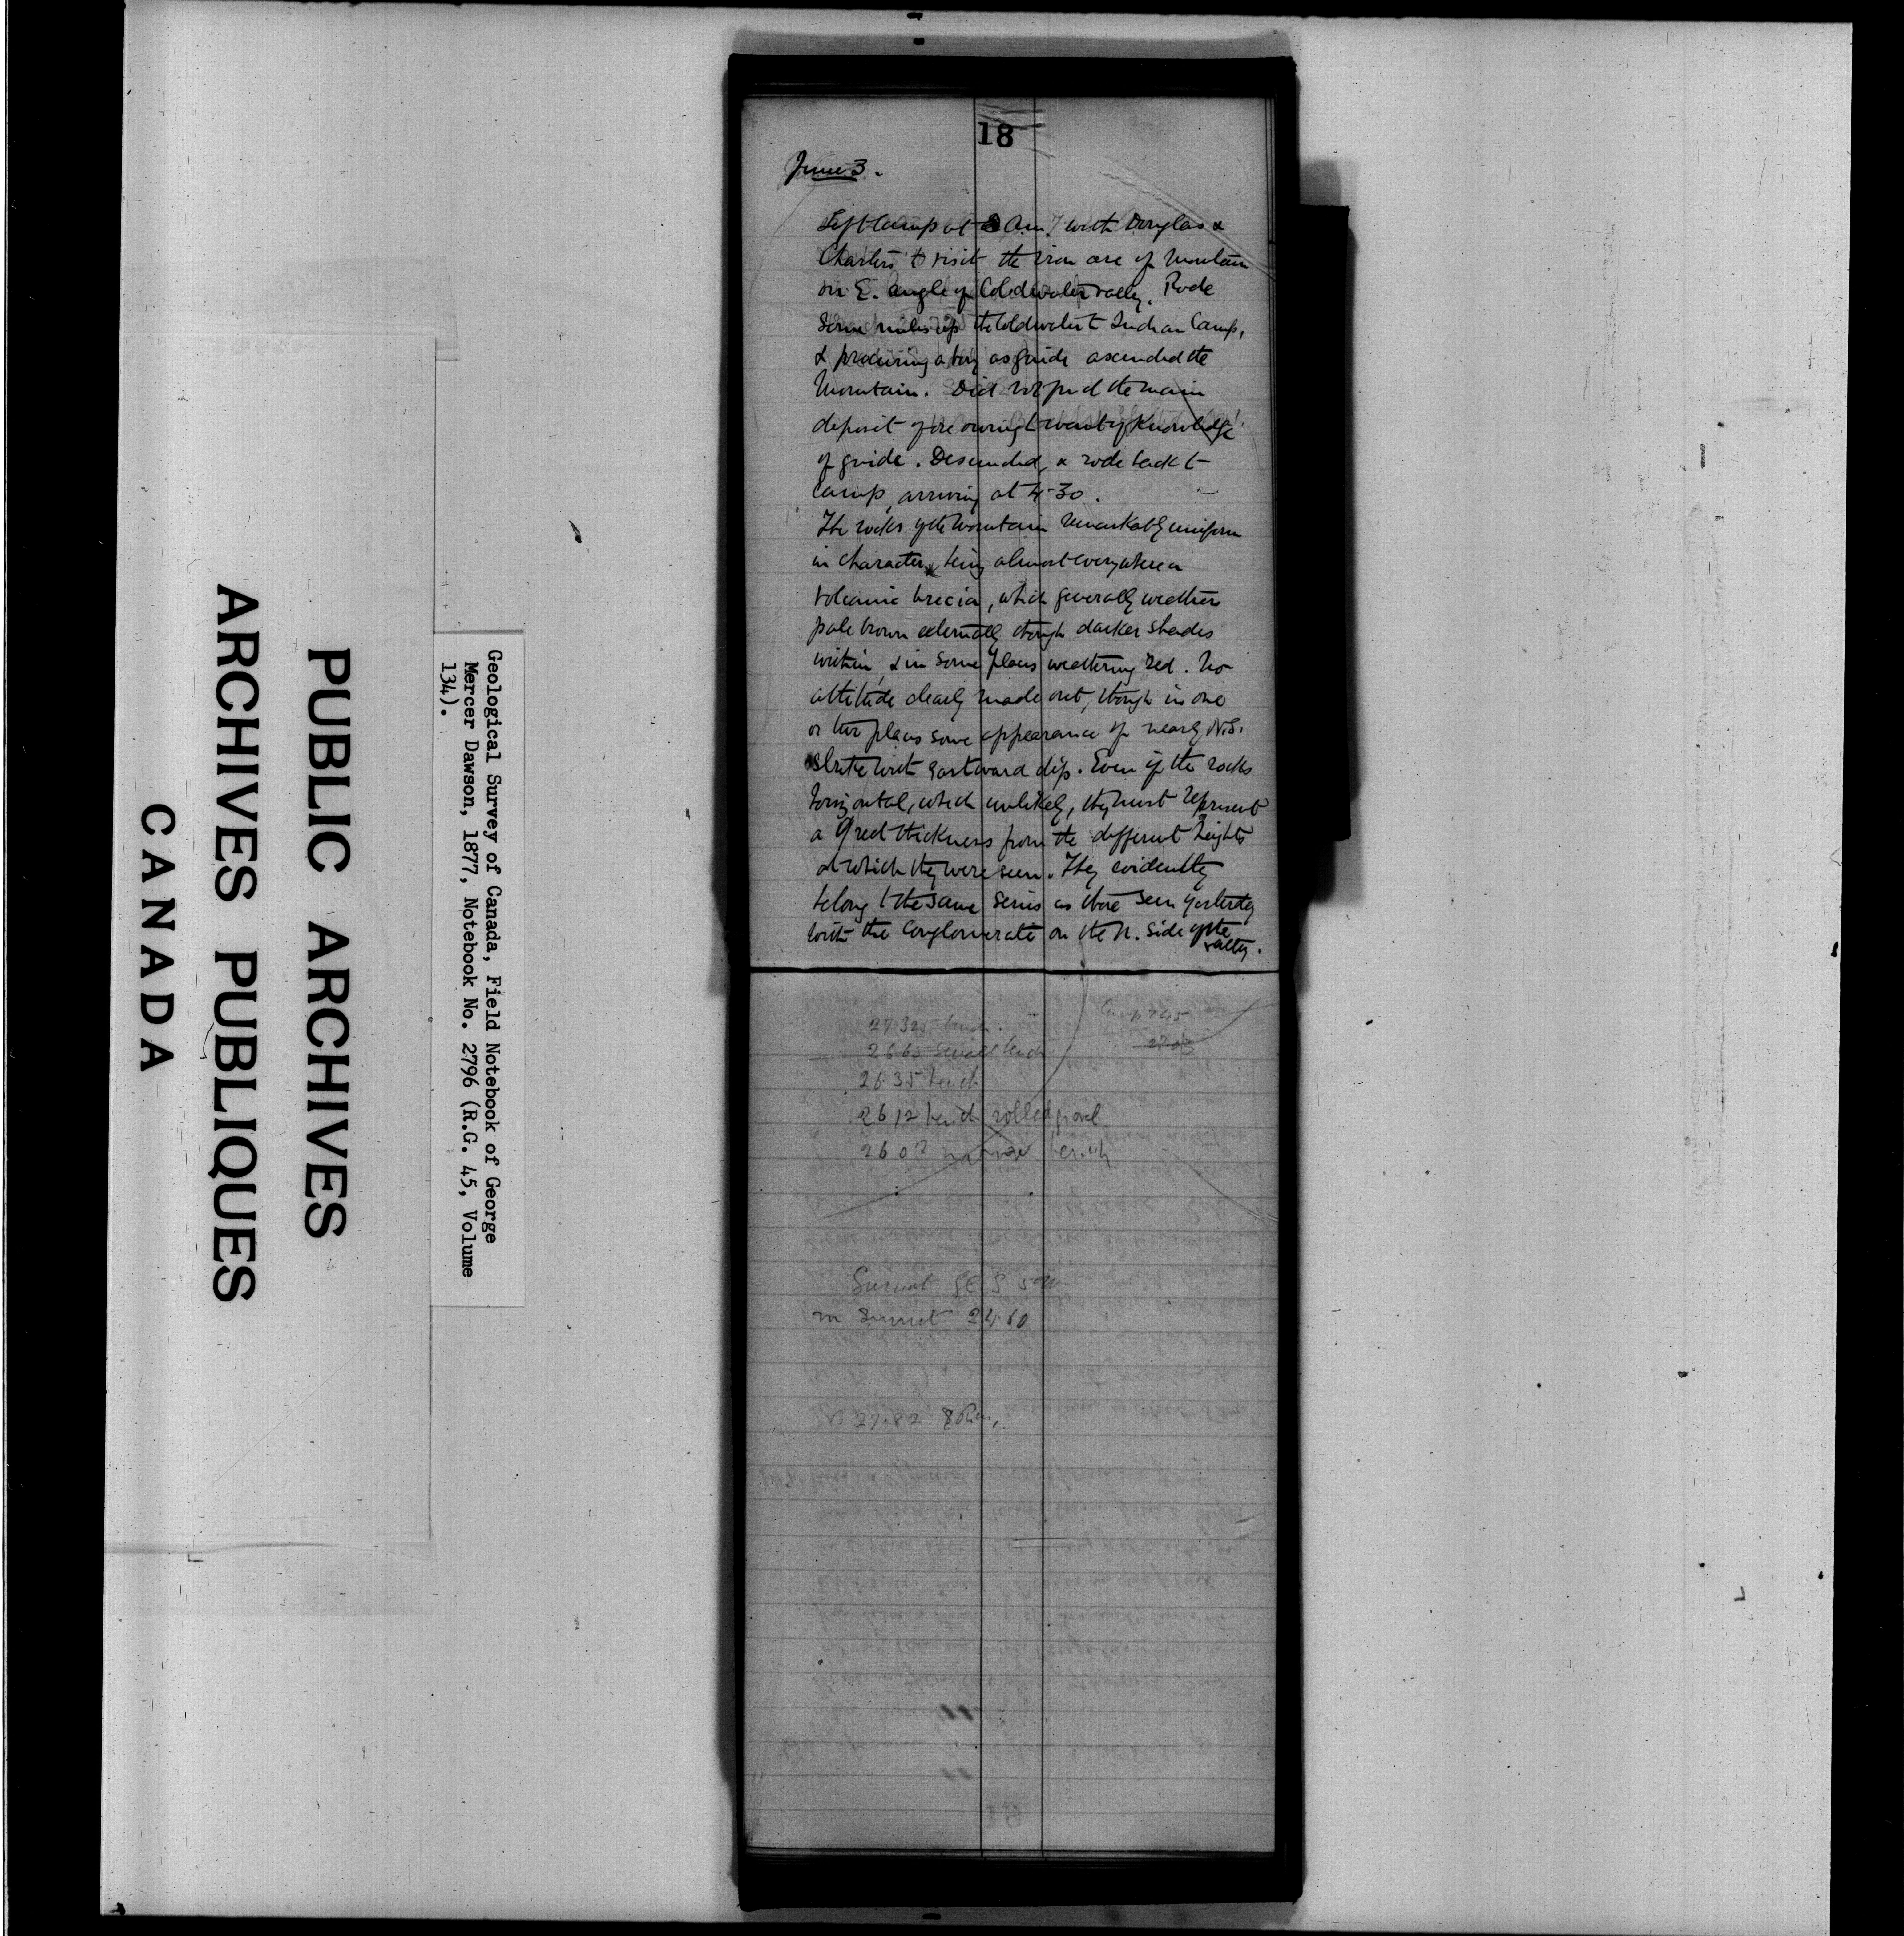 18
June 3.
Left Camp at 8 Am. with Douglas &
Charters to visit the iron ore of Mountain
on E. angle of Coldwater valley. Rode
Some miles up the Coldwater to Indian Camp,
& procuring a boy as guide ascended the
Mountain. Did not find the main
deposit of ore owing to want of Knowledge
of guide. Descended, & rode back to
Camp, arriving at 4.30.
The rocks of the Mountain remarkably uniform
in character, being almost everywhere a
Volcanic brecia, which generally weathers
pale brown externally though darker shades
within, & in some places weathering red. No
attitude clearly made out, though in one
or two places some appearance of nearly N.S.
Strike with Eastward dip. Even if the rocks
horizontal, which unlikely, they must represent
a great thickness from the different heights
at which they were seen. They evidently
belong to the same series as those seen yesterday
with the Conglomerate on the N. side of the
valley.
27.325 bench.
Camp 7.45
26.65 small bench
26.35 bench
26.12 bench rolled gravel
26.02 narrow bench
Summit SE S
on Summit 24.60
27.82
PUBLIC ARCHIVES
ARCHIVES PUBLIQUES
CANADA
Geological Survey of Canada, Field Notebook of George
Mercer Dawson, 1877, Notebook No. 2796 (R.G. 45, Volume
134).